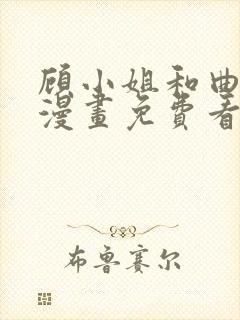 顾小姐和曲
漫畫免費看
布鲁赛尔